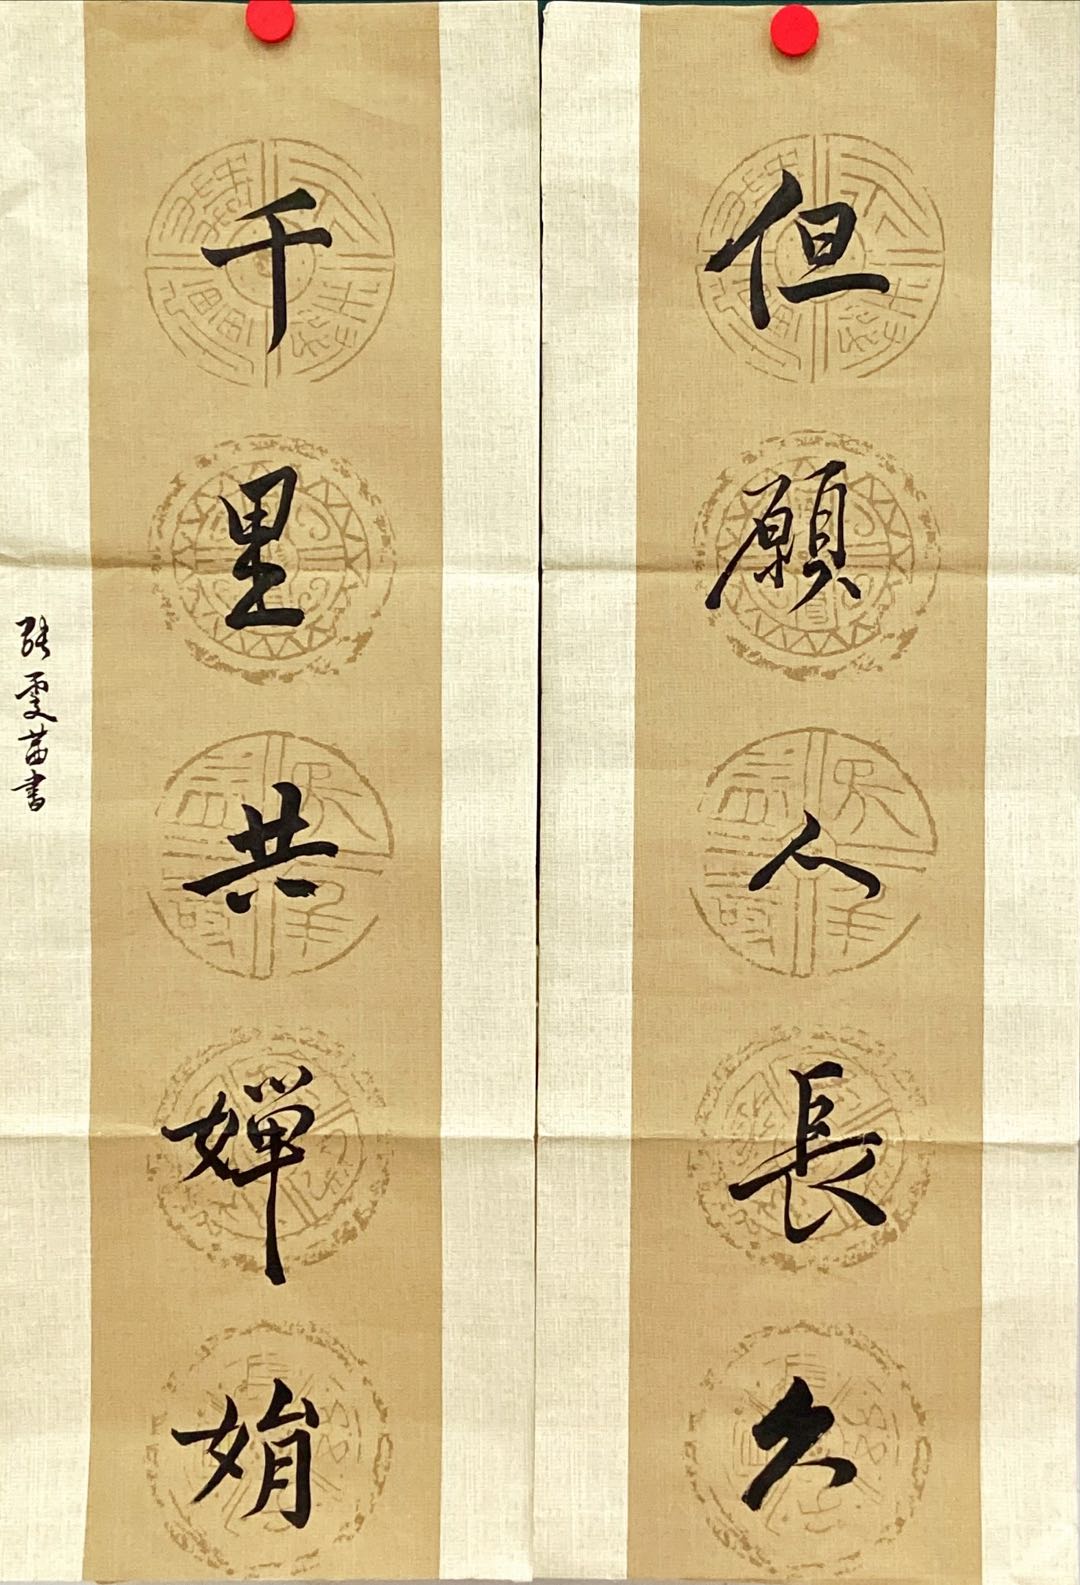 但願人長久
千里共嬋娟
張雯苗書